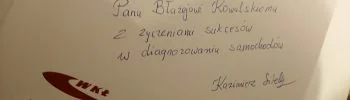 Panu Błażejowi Kowalskiemu
z życzeniami sukcesów
w diagnozowaniu samochodów
Kazimierz
WKŁ